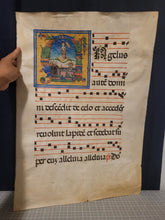 Ngelus
m descēdit de celo et acceden
reuoluit lapidē et sedebat su
per eum alleluia alleluia